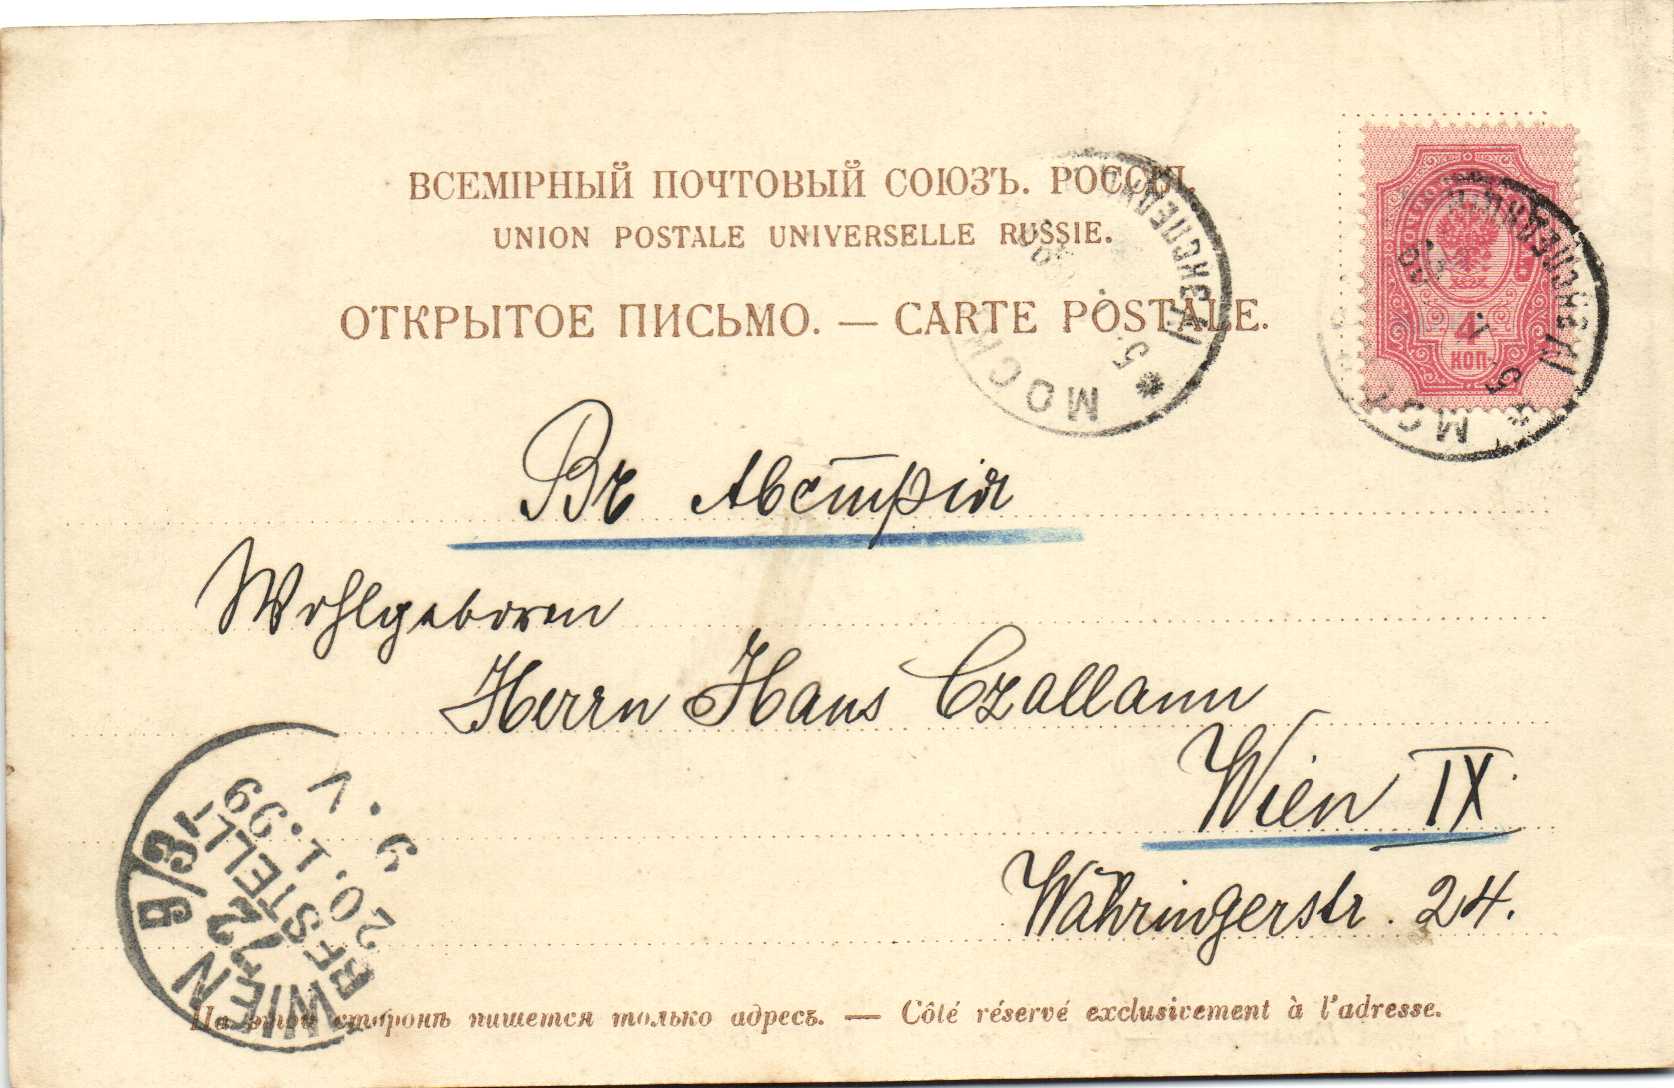 ВСЕМІРНЫЙ ПОЧТОВЫЙ СОЮЗЪ. РОССІЯ.
UNION POSTALE UNIVERSELLE RUSSIE.
ОТКРЫТОЕ ПИСЬМО. — CARTE POSTALE.
4
КОП
МОСК
5
МОС
5
Въ Австрія
Wohlgeboren
Herrn Hans Czallann
Wien IX
Währingerstr. 24.
WIEN 9/3
72
BESTELL
20.1.99
9.V
На этой сторонѣ пишется только адресъ. — Côté réservé exclusivement à l'adresse.